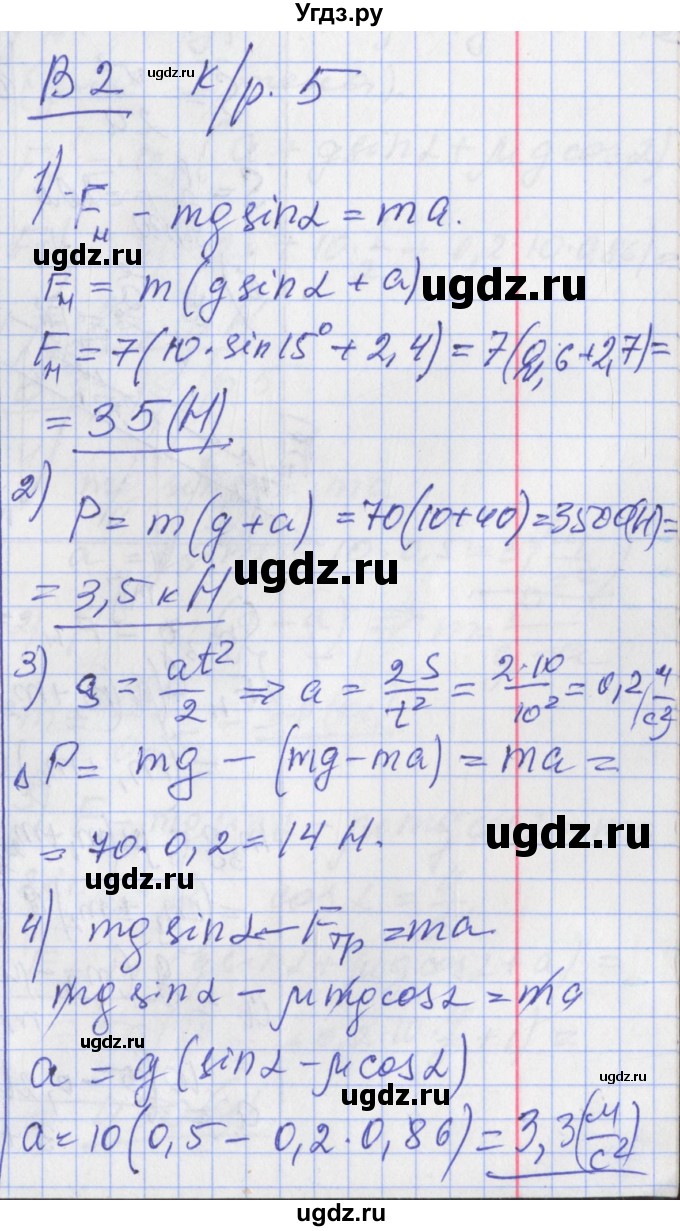 Угдз.ру
В 2 к/р. 5
ugdz.ru
1) Fн - mg sinα = ma.
ugdz.ru
Fн = m(g sinα + a)
ugdz.ru
Fн = 7(10·sin15° + 2,4) = 7(2,6+2,7) =
= 35(Н).
2) P = m(g+a) = 70(10+40) = 3500(Н) =
ugdz.ru
= 3,5 кН
3) S = at²/2 => a = 2S/t² = 2·10/10² = 0,2(м/с²)
ΔP = mg - (mg - ma) = ma =
ugdz.ru
= 70·0,2 = 14 Н.
ugdz.ru
4) mg sinα - Fтр = ma
mg sinα - μmg cosα = ma
ugdz.ru
a = g(sinα - μcosα)
a = 10(0,5 - 0,2·0,86) = 3,3(м/с²)
ugdz.ru
ugdz.ru